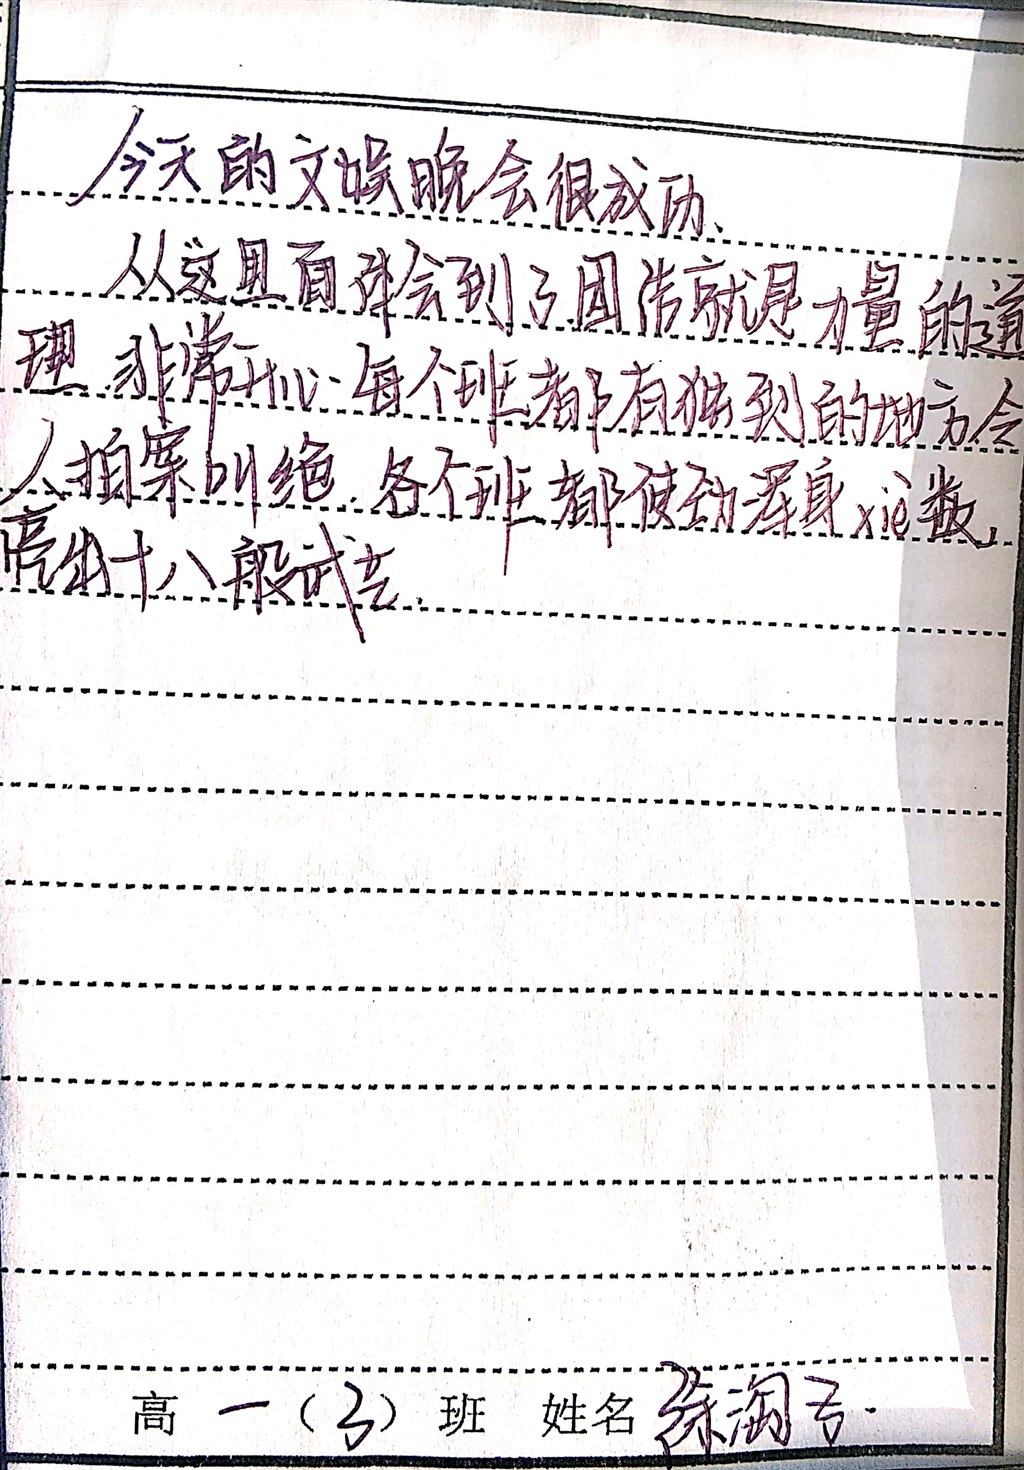 今天的文娱晚会很成功、
从这里面体会到了团结就是力量的道
理.非常开心.每个班都有独到的地方令
人拍案叫绝.各个班都使劲浑身xiè数,
亮出十八般武艺.
高一(3)班 姓名